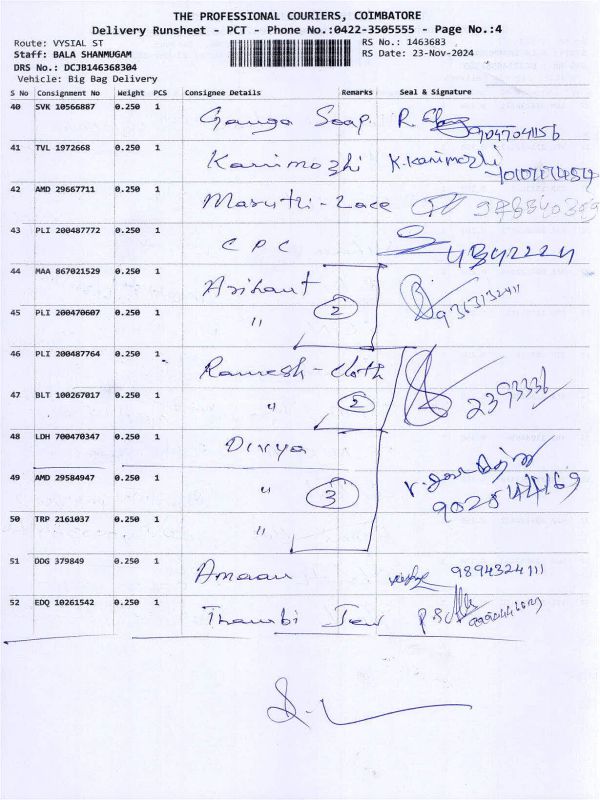 THE PROFESSIONAL COURIERS, COIMBATORE
Delivery Runsheet - PCT - Phone No.:0422-3505555 - Page No.:4
Route: VYSIAL ST RS No.: 1463683
Staff: BALA SHANMUGAM RS Date: 23-Nov-2024
DRS No.: DCJB146368304
Vehicle: Big Bag Delivery
S No Consignment No Weight PCS Consignee Details Remarks Seal & Signature
40 SVK 10566887 0.250 1 Ganga Soap
41 TVL 1972668 0.250 1 Kanimozhi K.Kanimozhi
42 AMD 29667711 0.250 1 Maruthi-Lace
43 PLI 200487772 0.250 1 CPC
44 MAA 867021529 0.250 1 Arihant
45 PLI 200470607 0.250 1 " 2
46 PLI 200487764 0.250 1 Ramesh-Cloth
47 BLT 100267017 0.250 1 " 2 2393336
48 LDH 700470347 0.250 1 Divya
49 AMD 29584947 0.250 1 " 3
50 TRP 2161037 0.250 1 "
51 DDG 379849 0.250 1 Amaan 9894324111
52 EDQ 10261542 0.250 1 Thambi